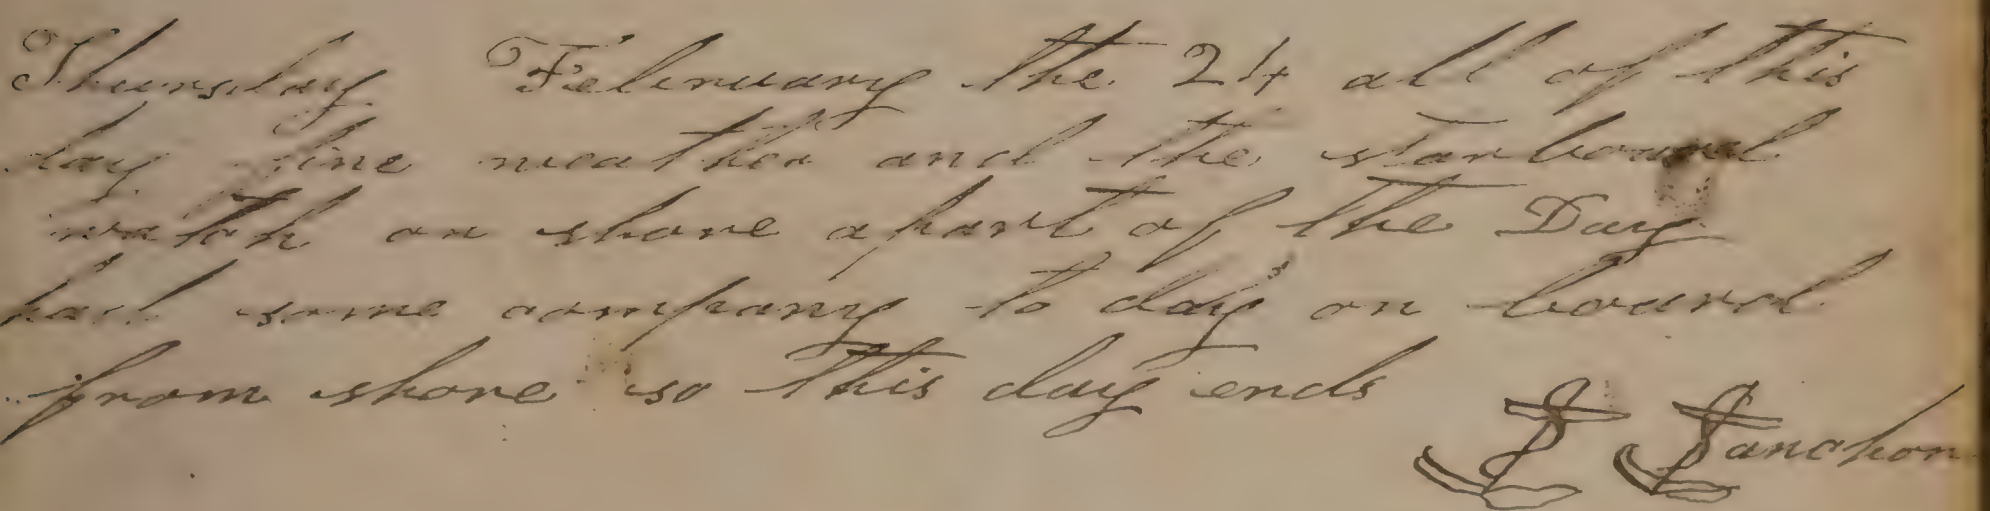 Thursday February the 24 all of this
day fine weather and the starbourd
watch on shore apart of the Day
had some company to day on bourd
from shore so this day ends
anchor